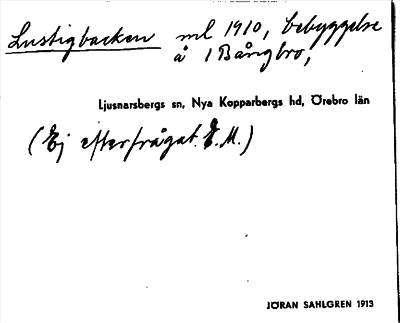 Lustigbacken ml 1910, bebyggelse
å 1 Bångbro,
Ljusnarsbergs sn, Nya Kopparbergs hd, Örebro län
(Ej efterfrågat. E.M.)
JÖRAN SAHLGREN 1913